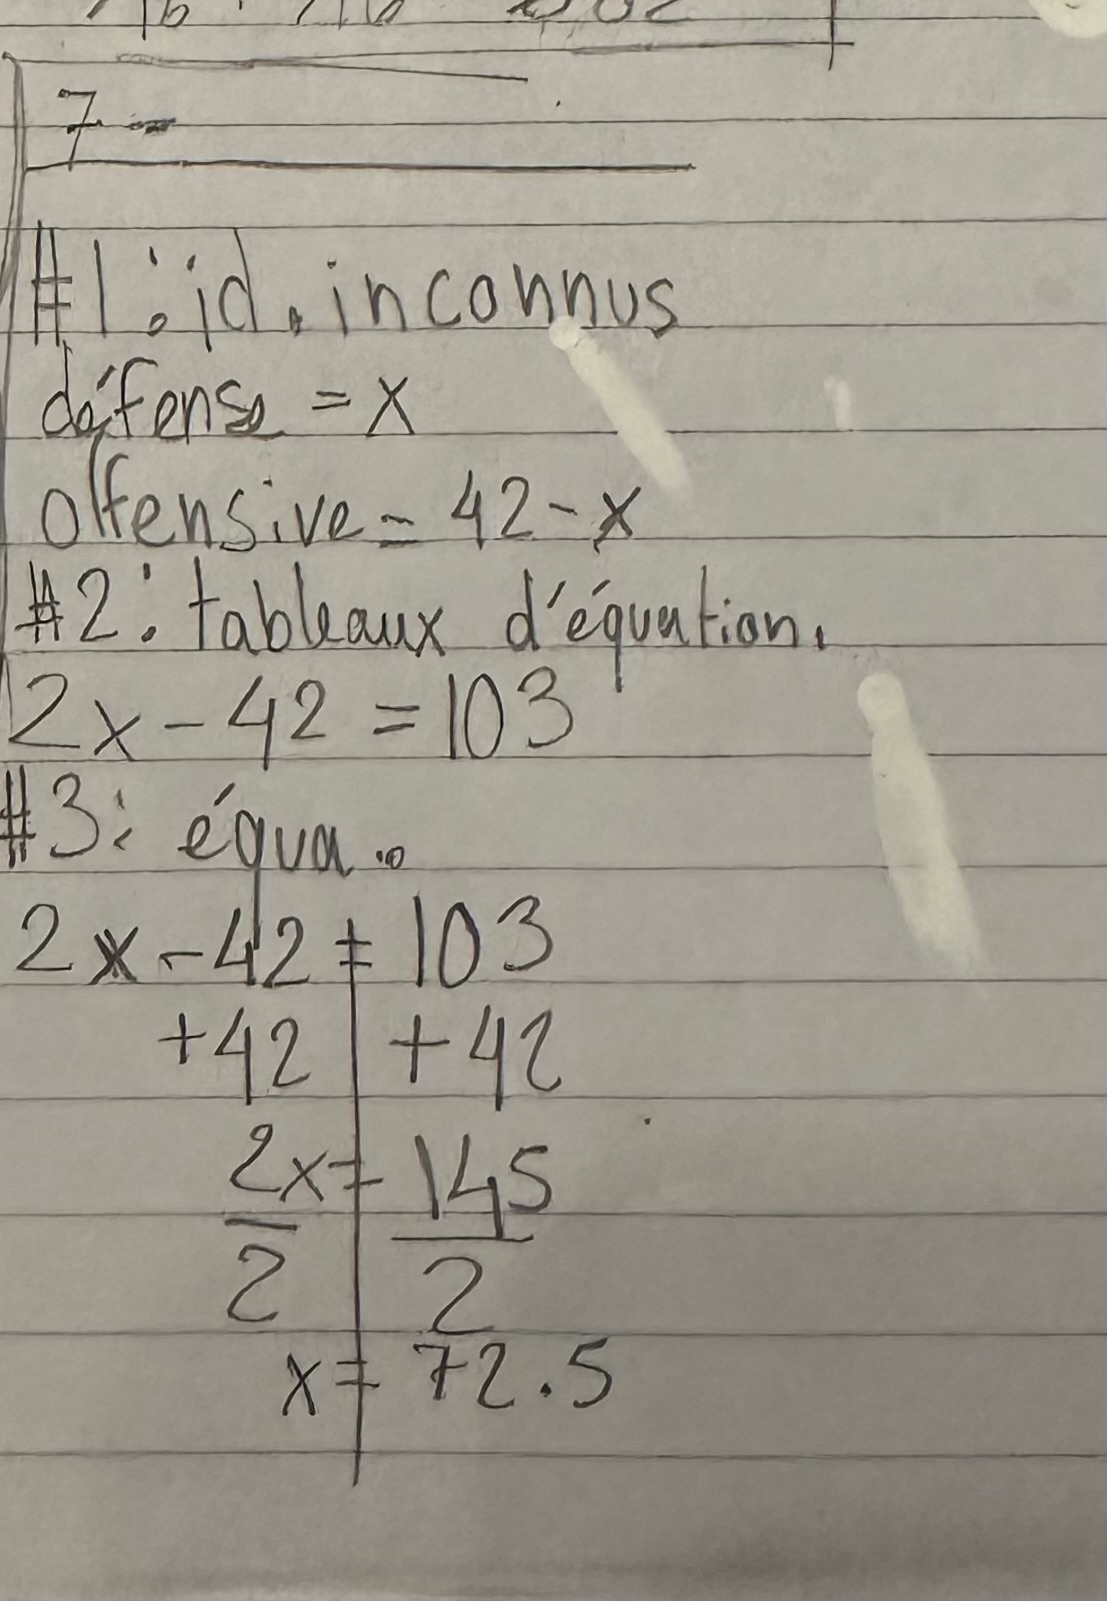 7-
#1: id. inconnus
défense = x
offensive = 42-x
#2: tableaux d'équation.
2x - 42 = 103
#3: équa..
2x - 42 = 103
+42 +42
2x = 145
2 2
x = 72.5